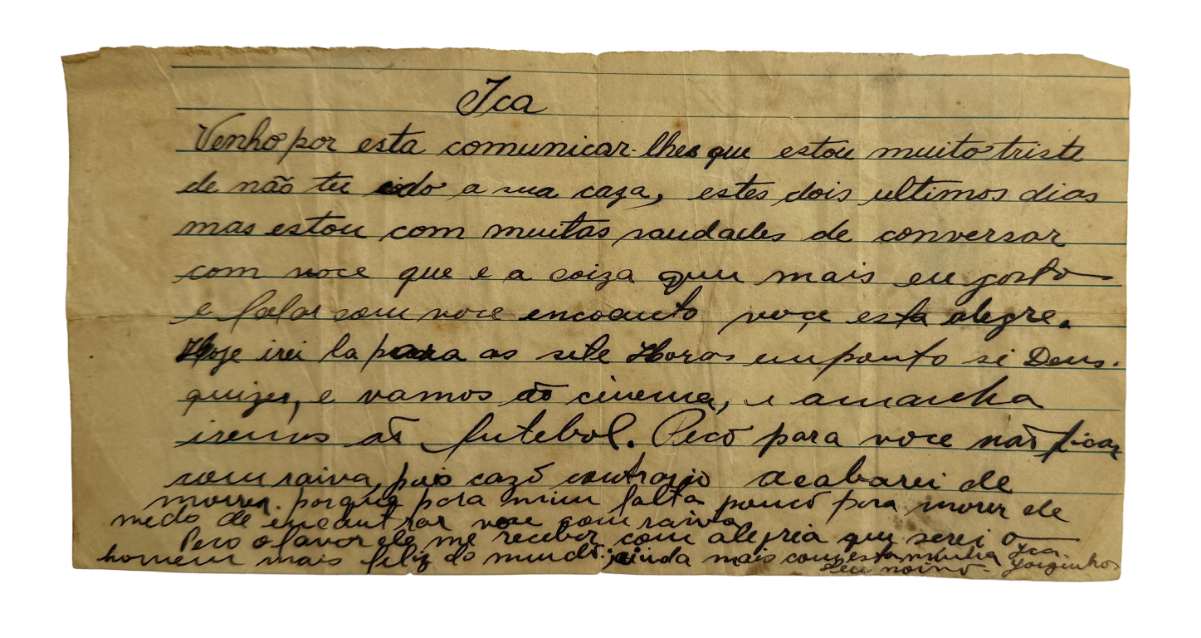 Ica
Venho por esta comunicar-lhes que estou muito triste
de não ter ido a sua caza, estes dois ultimos dias
mas estou com muitas saudades de conversar
com voce que e a coiza que mais eu gosto
e falar com voce encoanto voçe esta alegre.
Hoje irei la para as sete Horas em ponto si Deus.
quizer, e vamos ao cinema, e amanha
iremos ao futebol. Peco para voce não ficar
com raiva, pois cazo contrario acabarei de
morrer. porque para mim falta pouco para morer de
medo de encontrar voce com raiva
Peco o favor de me receber com alegria que serei o
homem mais feliz do mundo; ainda mais com esta minha Ica.
Seu noivo - Jorginho